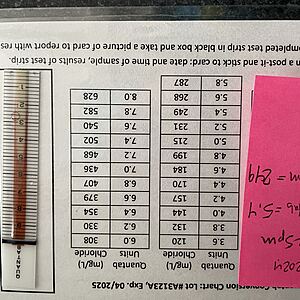 Conversion Chart: Lot #A3123A, Exp. 04/2025
Quantab Units (mg/L) Chloride
3.6 120
3.8 132
4.0 144
4.2 157
4.4 170
4.6 184
4.8 199
5.0 215
5.2 231
5.4 249
5.6 268
5.8 287
Quantab Units (mg/L) Chloride
6.0 308
6.2 330
6.4 354
6.6 379
6.8 407
7.0 436
7.2 468
7.4 502
7.6 540
7.8 582
8.0 628
QUANTAB
/2024
5pm
ab = 5.4
m = 249
a post-it and stick to card: date and time of sample, results of test strip.
test strip in black box and take a picture of card to report with res